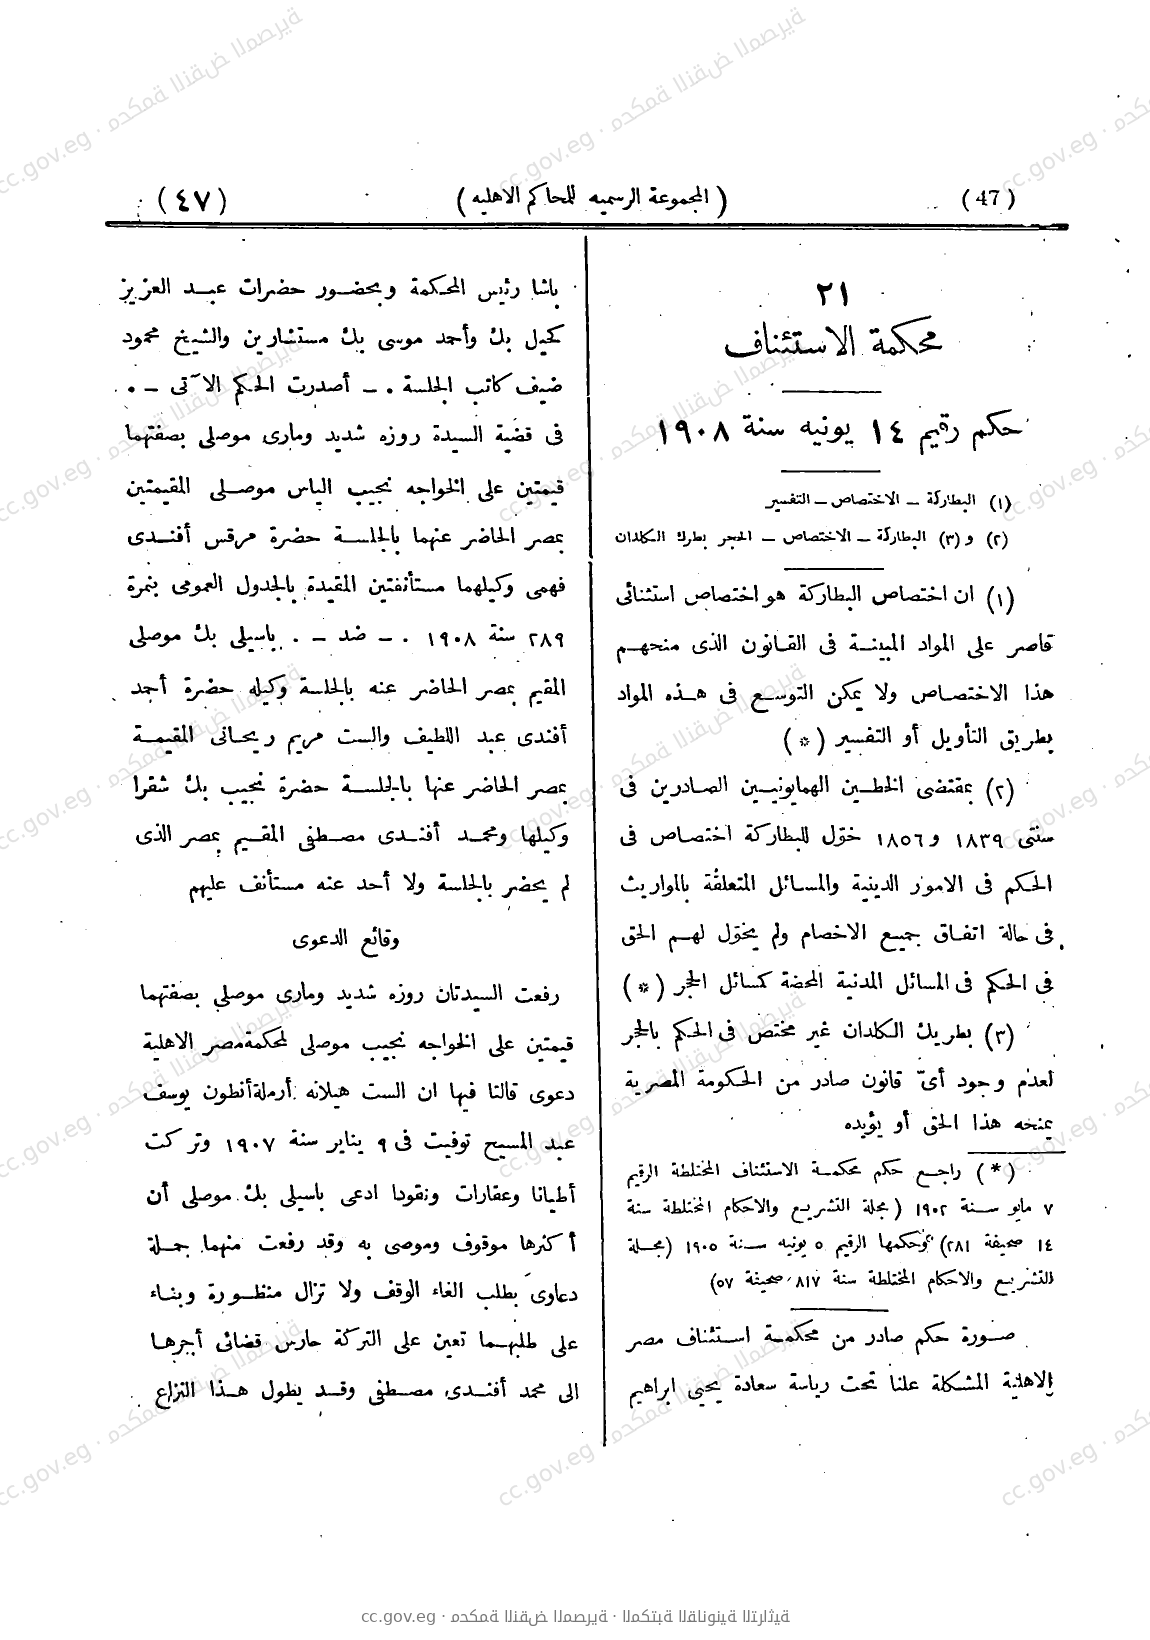 (47)
(المجموعة الرسميه للمحاكم الاهليه)
(٤٧)
٢١
محكمة الاستئناف
حكم رقيم ١٤ يونيه سنة ١٩٠٨
(١) البطاركة – الاختصاص – التفسير
(٢) و (٣) البطاركة – الاختصاص – الحجر بطرك الكلدان
(١) ان اختصاص البطاركة هو اختصاص استثنائى
قاصر على المواد المبينة فى القانون الذى منحهم
هذا الاختصاص ولا يمكن التوسع فى هذه المواد
بطريق التأويل أو التفسير (*)
(٢) بمقتضى الخطين الهمايونيين الصادرين فى
سنتى ١٨٣٩ و ١٨٥٦ خوّل للبطاركة اختصاص فى
الحكم فى الامور الدينية والمسائل المتعلقة بالمواريث
فى حالة اتفاق جميع الاخصام ولم يخوّل لهم الحق
فى الحكم فى المسائل المدنية المحضة كمسائل الحجر (*)
(٣) بطريك الكلدان غير مختص فى الحكم بالحجر
لعدم وجود أىّ قانون صادر من الحكومة المصرية
يمنحه هذا الحق أو يؤيده
(*) راجع حكم محكمة الاستئناف المختلطة الرقيم
٧ مايو سنة ١٩٠٢ (مجلة التشريع والاحكام المختلطة سنة
١٤ صحيفة ٢٨١) وحكمها الرقيم ٥ يونيه سنة ١٩٠٥ (مجلة
التشريع والاحكام المختلطة سنة ٨١٧ صحيفة ٥٧)
صورة حكم صادر من محكمة استئناف مصر
الاهلية المشكلة علنا تحت رياسة سعادة يحيى ابراهيم
باشا رئيس المحكمة وبحضور حضرات عبد العزيز
كحيل بك وأحمد موسى بك مستشارين والشيخ محمود
ضيف كاتب الجلسة . – أصدرت الحكم الآتى – .
فى قضية السيدة روزه شديد ومارى موصلى بصفتهما
قيمتين على الخواجه نجيب الياس موصلى المقيمتين
بمصر الحاضر عنهما بالجلسة حضرة مرقس أفندى
فهمى وكيلهما مستأنفتين المقيدة بالجدول العمومى بنمرة
٢٨٩ سنة ١٩٠٨ . – ضد – . باسيلى بك موصلى
المقيم بمصر الحاضر عنه بالجلسة وكيله حضرة أحمد
أفندى عبد اللطيف والست مريم ريحانى المقيمة
بمصر الحاضر عنها بالجلسة حضرة نجيب بك شقرا
وكيلها ومحمد أفندى مصطفى المقيم بمصر الذى
لم يحضر بالجلسة ولا أحد عنه مستأنف عليهم
وقائع الدعوى
رفعت السيدتان روزه شديد ومارى موصلى بصفتهما
قيمتين على الخواجه نجيب موصلى لمحكمة مصر الاهلية
دعوى قالتا فيها ان الست هيلانه أرملة أنطون يوسف
عبد المسيح توفيت فى ٩ يناير سنة ١٩٠٧ وتركت
أطيانا وعقارات ونقودا ادعى باسيلى بك موصلى أن
أكثرها موقوف وموصى به وقد رفعت منهما جملة
دعاوى بطلب الغاء الوقف ولا تزال منظورة وبناء
على طلبهما تعين على التركة حارس قضائى أجرها
الى محمد أفندى مصطفى وقد يطول هذا النزاع
cc.gov.eg · محكمة النقض المصرية · المكتبة القانونية التراثية